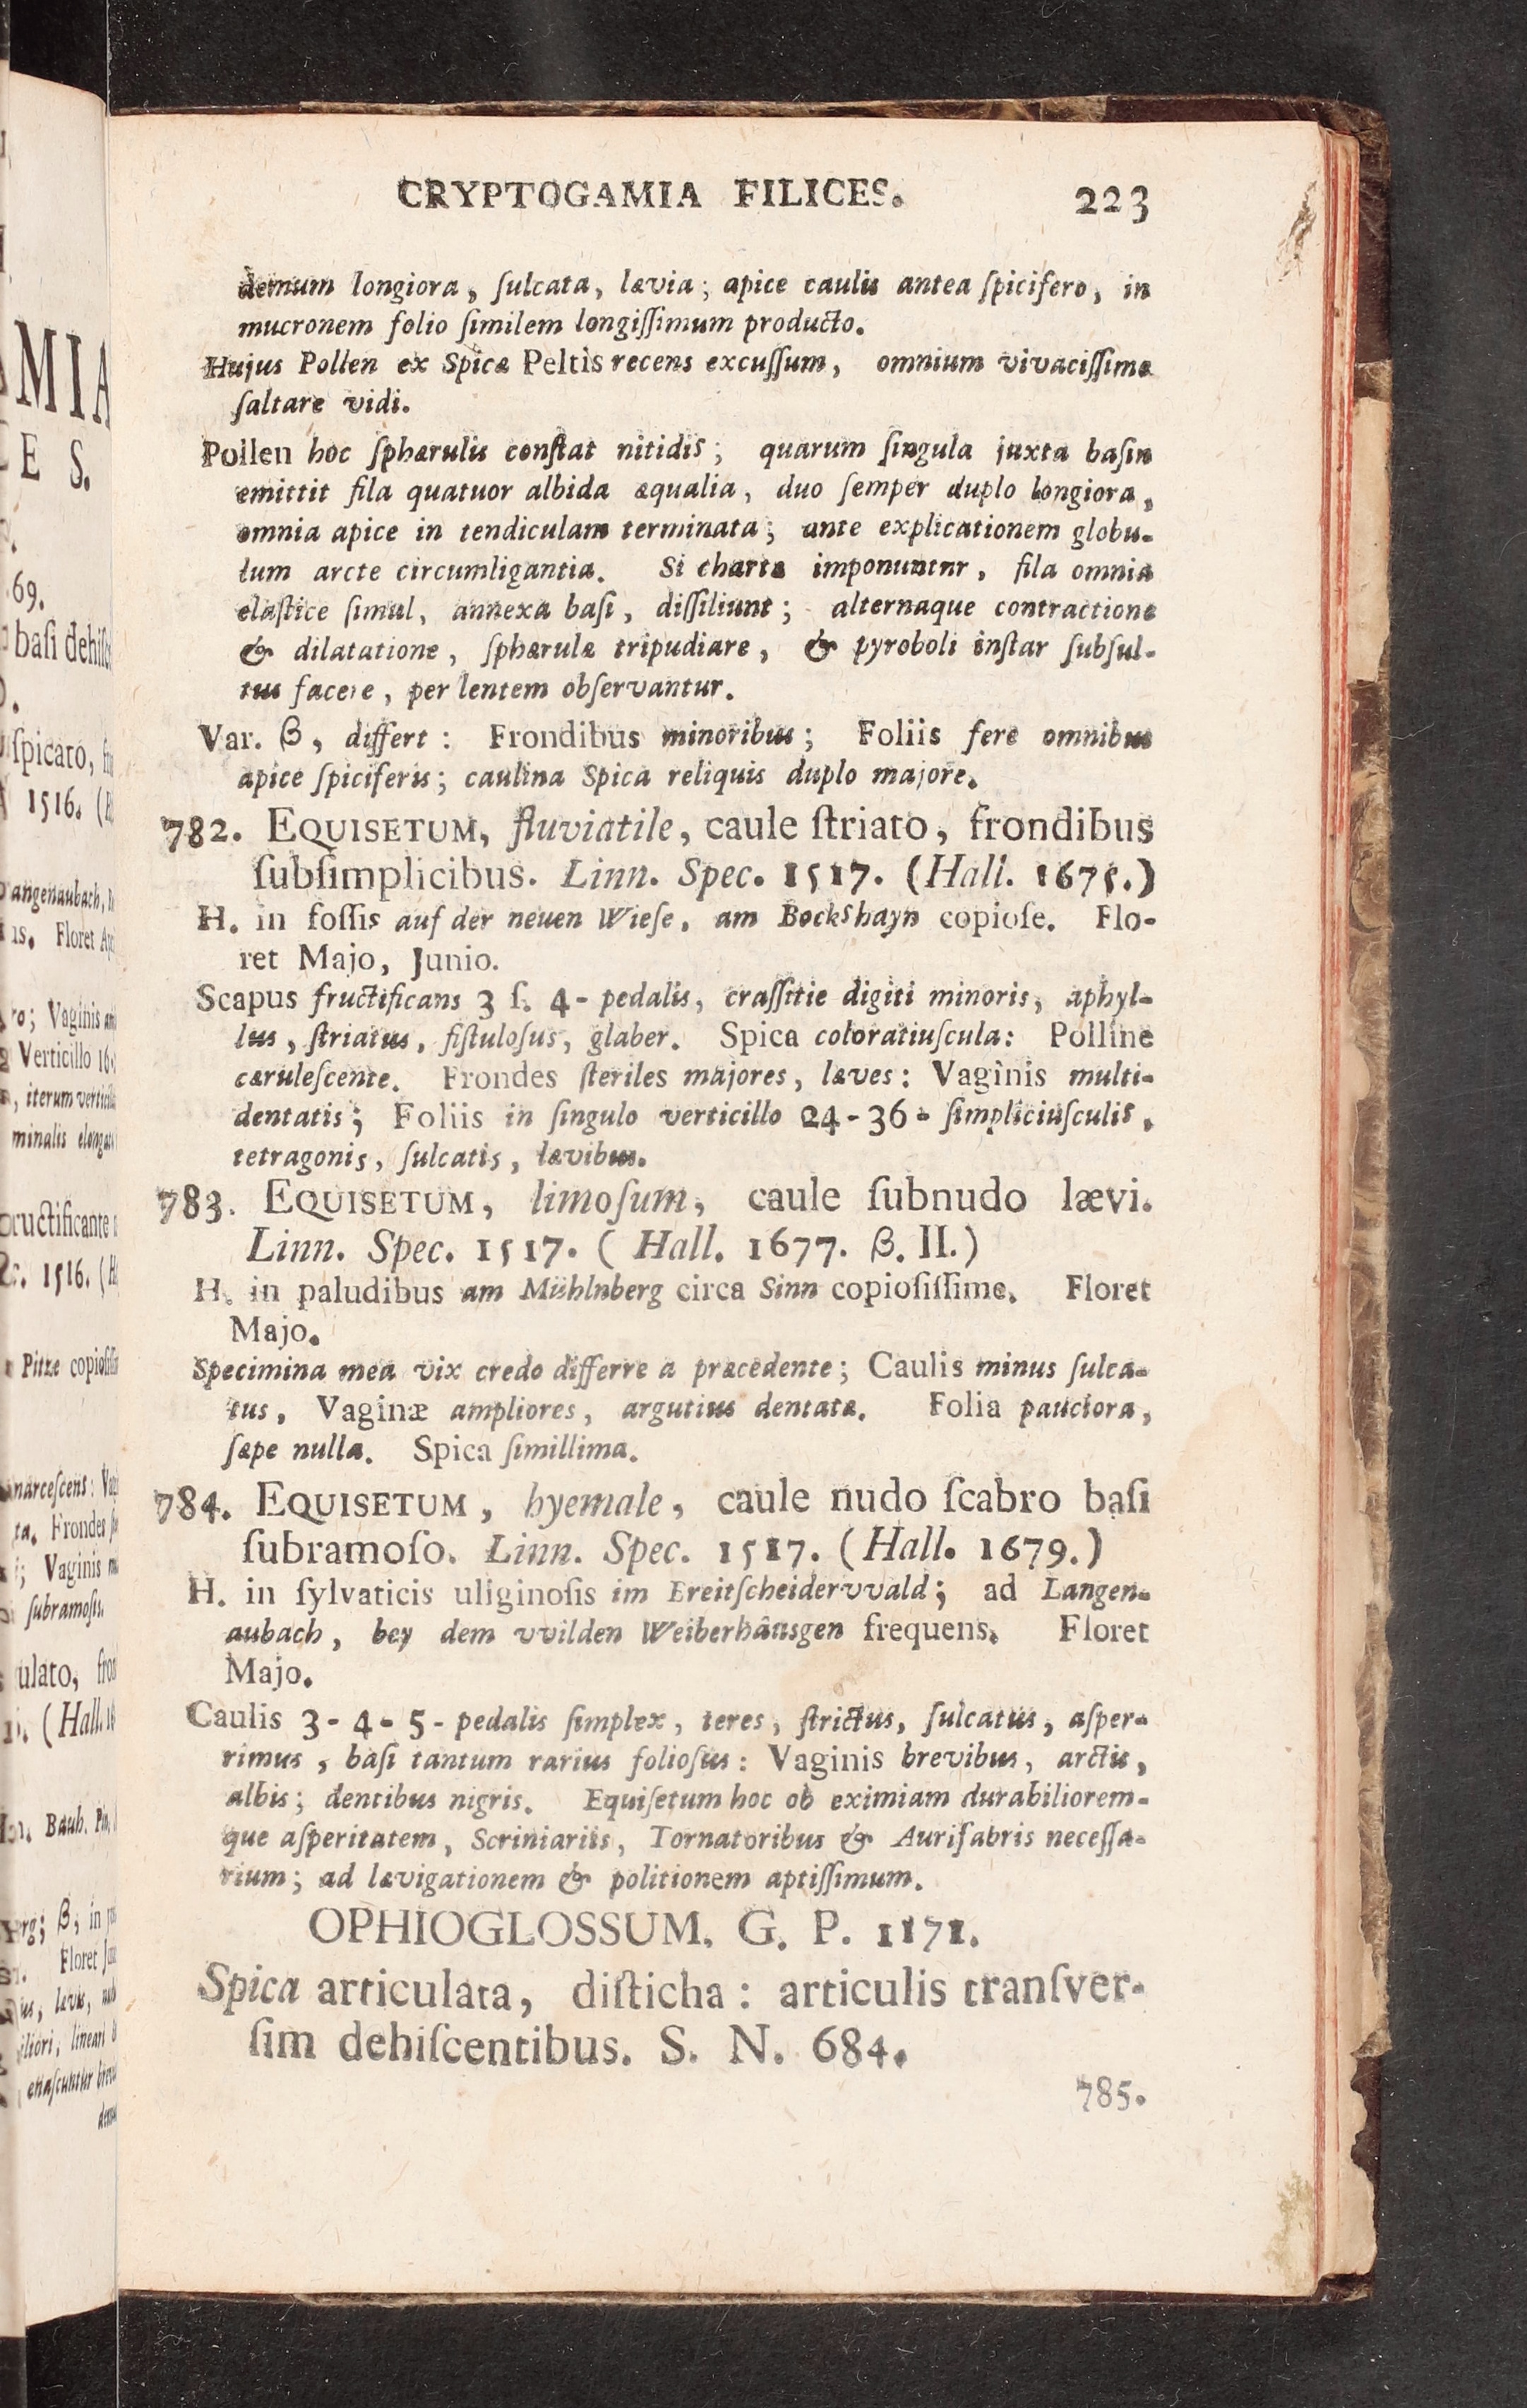 CRYPTOGAMIA FILICES. 223
demum longiora, ſulcata, lævia; apice caulis antea ſpicifero, in
mucronem folio ſimilem longiſſimum producto.
Hujus Pollen ex Spicæ Peltis recens excuſſum, omnium vivaciſſime
ſaltare vidi.
Pollen hoc ſphærulis conſtat nitidis; quarum ſingula juxta baſin
emittit fila quatuor albida æqualia, duo ſemper duplo longiora,
omnia apice in tendiculam terminata; ante explicationem globu-
lum arcte circumligantia. Si chartæ imponuntnr, fila omnia
elaſtice ſimul, annexa baſi, diſſiliunt; alternaque contractione
& dilatatione, ſphærulæ tripudiare, & pyroboli inſtar ſubſul-
tus facere, per lentem obſervantur.
Var. β, differt: Frondibus minoribus; Foliis fere omnibus
apice ſpiciferis; caulina Spica reliquis duplo majore.
782. EQUISETUM, fluviatile, caule ſtriato, frondibus
ſubſimplicibus. Linn. Spec. 1517. (Hall. 1675.)
H. in foſſis auf der neuen Wieſe, am Bockshayn copioſe. Flo-
ret Majo, Junio.
Scapus fructificans 3 ſ. 4-pedalis, craſſitie digiti minoris, aphyl-
lus, ſtriatus, fiſtuloſus, glaber. Spica coloratiuſcula: Polline
cæruleſcente. Frondes ſteriles majores, læves: Vaginis multi-
dentatis; Foliis in ſingulo verticillo 24-36-ſimpliciuſculis,
tetragonis, ſulcatis, lævibus.
783. EQUISETUM, limoſum, caule ſubnudo lævi.
Linn. Spec. 1517. (Hall. 1677. β. II.)
H. in paludibus am Mühlnberg circa Sinn copioſiſſime. Floret
Majo.
Specimina mea vix credo differre a præcedente; Caulis minus ſulca-
tus, Vaginæ ampliores, argutius dentatæ. Folia pauciora,
ſæpe nulla. Spica ſimillima.
784. EQUISETUM, hyemale, caule nudo ſcabro baſi
ſubramoſo. Linn. Spec. 1517. (Hall. 1679.)
H. in ſylvaticis uliginoſis im Breitſcheidervvald; ad Langen-
aubach, bey dem vvilden Weiberhäusgen frequens. Floret
Majo.
Caulis 3-4-5-pedalis ſimplex, teres, ſtrictus, ſulcatus, aſper-
rimus, baſi tantum rarius folioſus: Vaginis brevibus, arctis,
albis; dentibus nigris. Equiſetum hoc ob eximiam durabiliorem-
que aſperitatem, Scriniariis, Tornatoribus & Aurifabris neceſſa-
rium; ad lævigationem & politionem aptiſſimum.
OPHIOGLOSSUM. G. P. 1171.
Spica articulata, diſticha: articulis tranſver-
ſim dehiſcentibus. S. N. 684.
785.